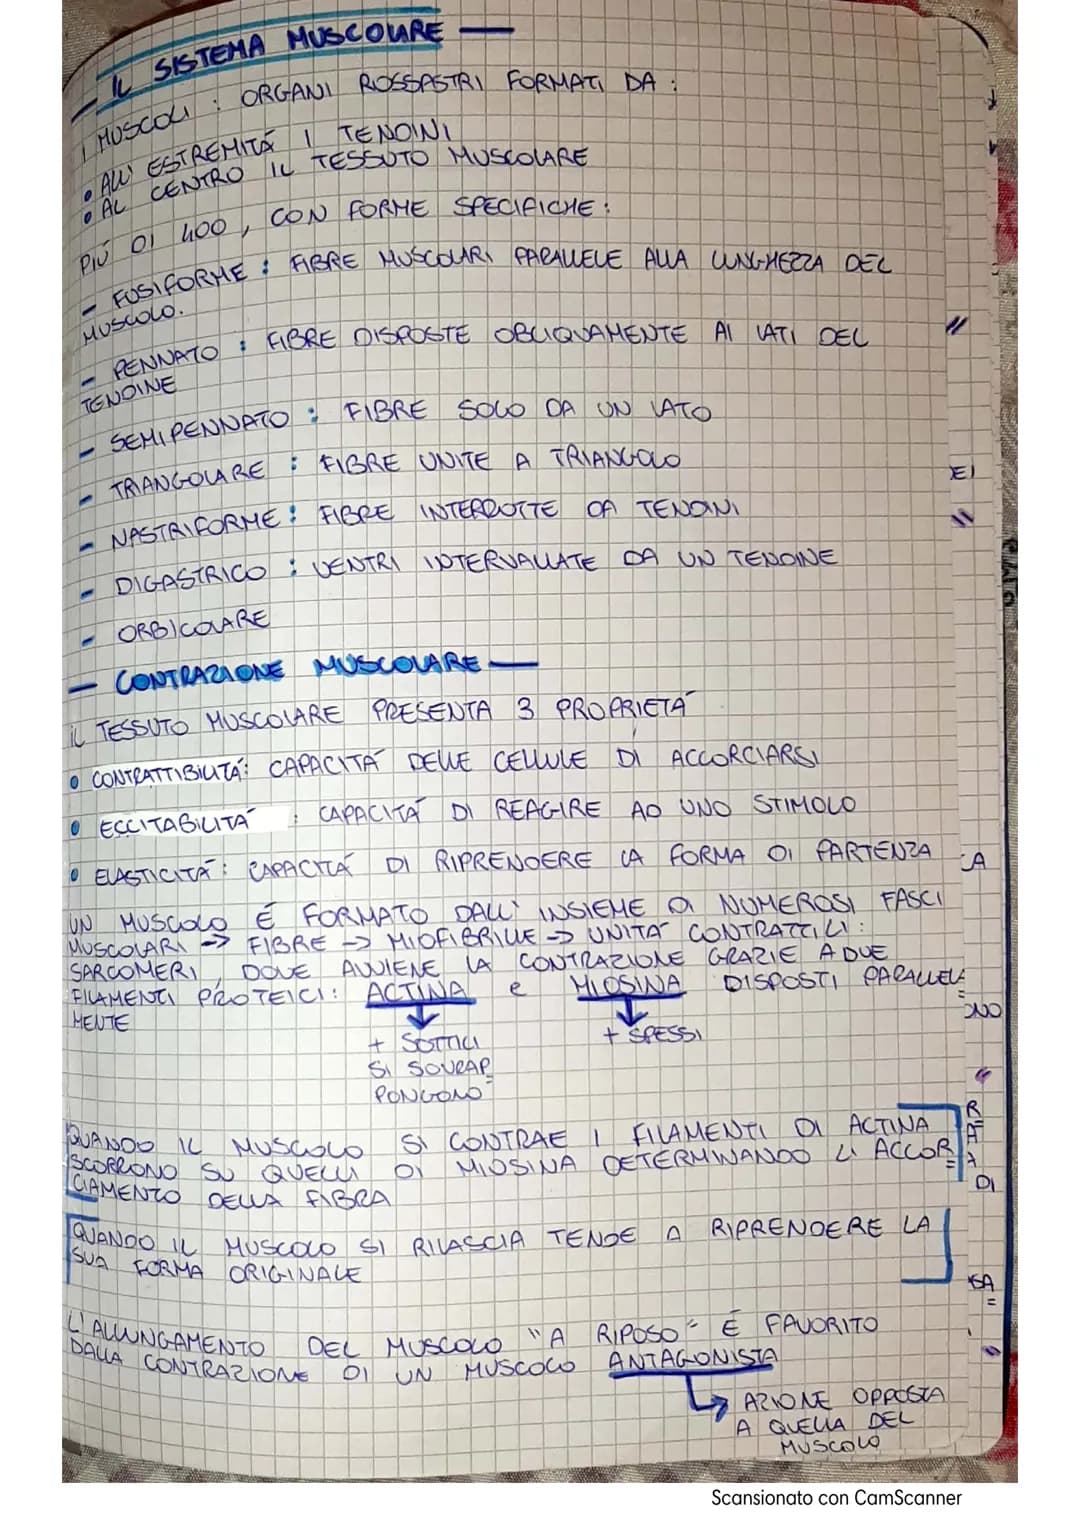 — IL SISTEMA MUSCOLARE —
I MUSCOLI : ORGANI ROSSASTRI FORMATI DA :
• ALL' ESTREMITÁ I TENDINI
• AL CENTRO IL TESSUTO MUSCOLARE
PIÚ DI 400, CON FORME SPECIFICHE :
- FUSIFORME : FIBRE MUSCOLARI PARALLELE ALLA LUNGHEZZA DEL
MUSCOLO.
- PENNATO : FIBRE DISPOSTE OBLIQUAMENTE AI LATI DEL
TENDINE
- SEMIPENNATO : FIBRE SOLO DA UN LATO
- TRIANGOLARE : FIBRE UNITE A TRIANGOLO
- NASTRIFORME : FIBRE INTERROTTE DA TENDINI
- DIGASTRICO : VENTRI INTERVALLATE DA UN TENDINE
- ORBICOLARE
— CONTRAZIONE MUSCOLARE —
IL TESSUTO MUSCOLARE PRESENTA 3 PROPRIETÁ
• CONTRATTIBILITÁ: CAPACITÁ DELLE CELLULE DI ACCORCIARSI
• ECCITABILITÁ : CAPACITÁ DI REAGIRE AD UNO STIMOLO
• ELASTICITÁ : CAPACITÁ DI RIPRENDERE LA FORMA DI PARTENZA
UN MUSCOLO É FORMATO DALL' INSIEME DI NUMEROSI FASCI
MUSCOLARI -> FIBRE -> MIOFIBRILLE -> UNITÁ CONTRATTILI :
SARCOMERI, DOVE AVVIENE LA CONTRAZIONE GRAZIE A DUE
FILAMENTI PROTEICI : ACTINA e MIOSINA DISPOSTI PARALLELA=
MENTE
+ SOTTILI
SI SOVRAP=
PONGONO
+ SPESSI
QUANDO IL MUSCOLO SI CONTRAE I FILAMENTI DI ACTINA
SCORRONO SU QUELLI DI MIOSINA DETERMINANDO L' ACCOR=
CIAMENTO DELLA FIBRA
QUANDO IL MUSCOLO SI RILASCIA TENDE A RIPRENDERE LA
SUA FORMA ORIGINALE
L'ALLUNGAMENTO DEL MUSCOLO "A RIPOSO" É FAVORITO
DALLA CONTRAZIONE DI UN MUSCOLO ANTAGONISTA
AZIONE OPPOSTA
A QUELLA DEL
MUSCOLO
Scansionato con CamScanner